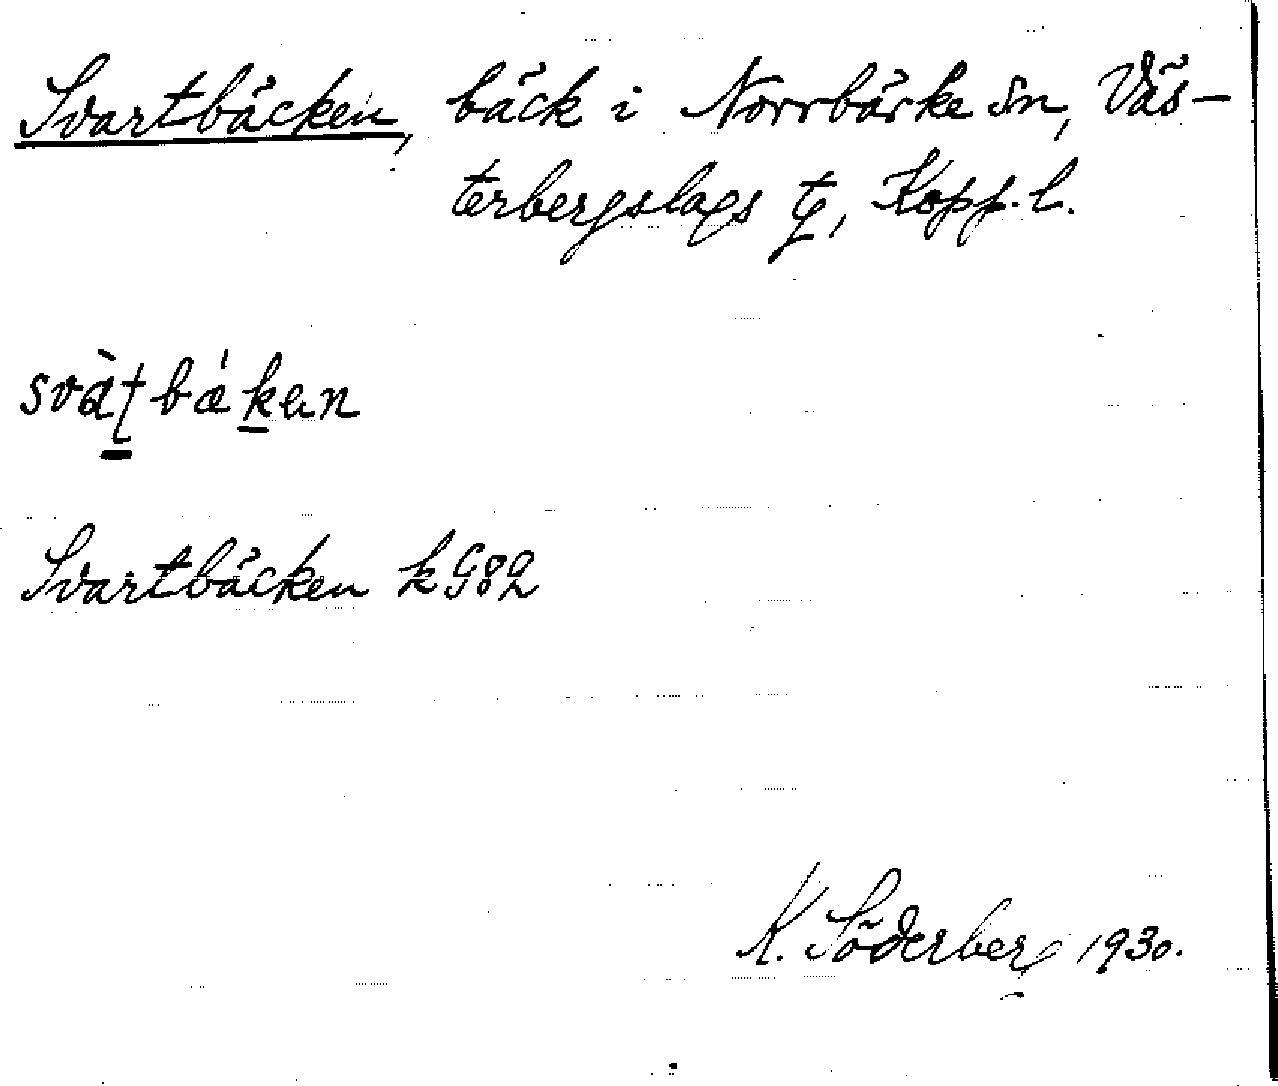 Svartbäcken, bäck i Norrbärke sn, Väs-
terbergslags tg, Kopp. l.
svàʈbǽken
Svartbäcken k G82
K. Söderberg 1930.